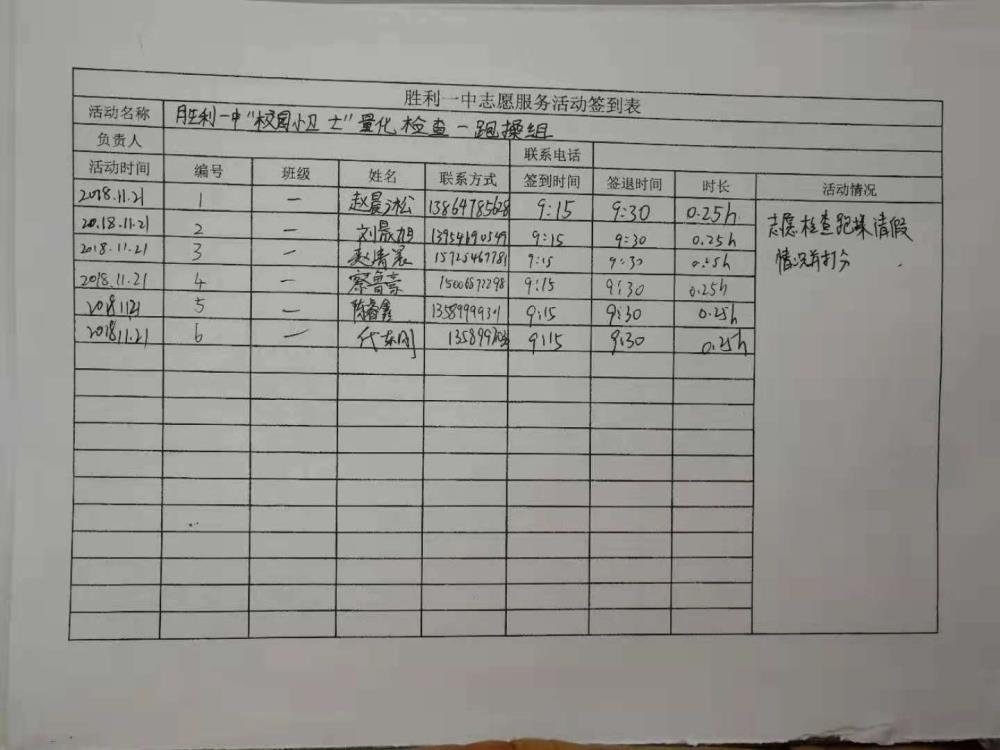 胜利一中志愿服务活动签到表
活动名称 胜利一中“校园小卫士”量化检查-跑操组
负责人 联系电话
活动时间 编号 班级 姓名 联系方式 签到时间 签退时间 时长 活动情况
2018.11.21 1 一 赵晨淞 13864785628 9:15 9:30 0.25h
2018.11.21 2 一 刘晟旭 13954690549 9:15 9:30 0.25h
2018.11.21 3 一 15725467781 9:15 9:30 0.25h
2018.11.21 4 一 蔡鲁豪 9:15 9:30 0.25h
2018.11.21 5 一 陈睿鑫 9:15 9:30 0.25h
2018.11.21 6 一 代东刚 9:15 9:30 0.25h
志愿检查跑操请假
情况并打分